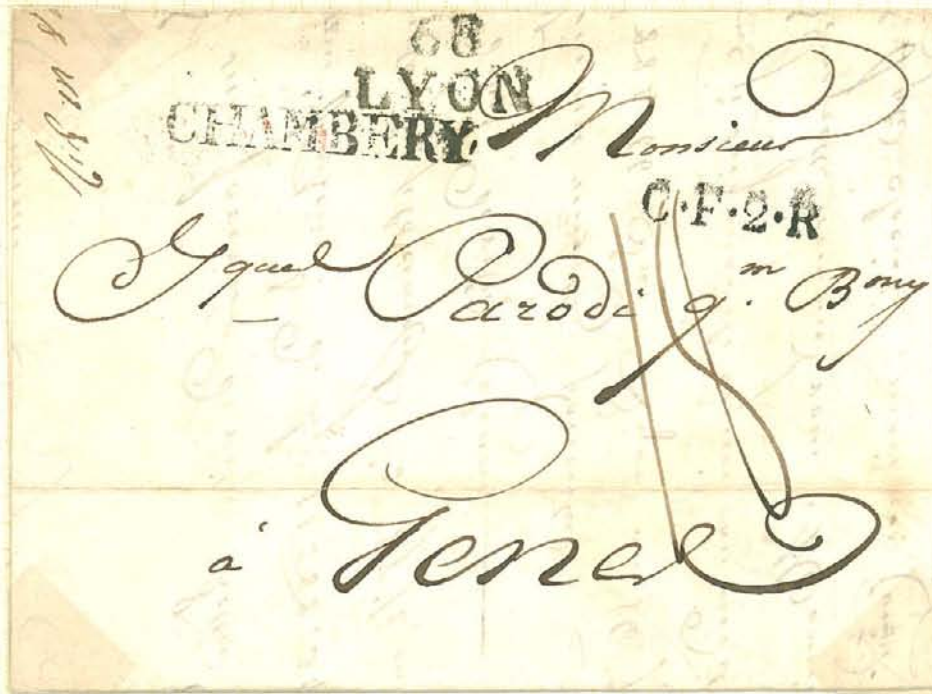 68
LYON
CHAMBERY
Monsieur
C·F·2·R
Parodi q.m
à Genes
18